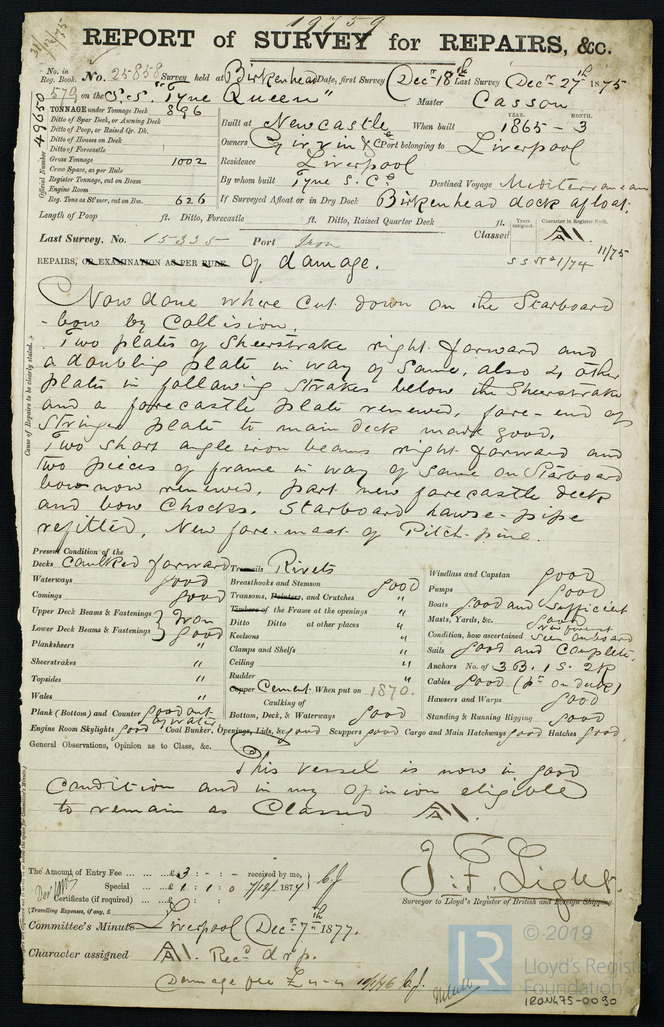 19759
31/12/75
REPORT of SURVEY for REPAIRS, &c.
No. in Reg. Book. No. 25858 Survey held at Birkenhead Date, first Survey Decr 18th Last Survey Decr 27th 1875
579 on the S.S. "Tyne Queen" Master Casson
Official Number 49650
TONNAGE under Tonnage Deck 896
Ditto of Spar Deck, or Awning Deck
Ditto of Poop, or Raised Qr. Dk.
Ditto of Houses on Deck
Ditto of Forecastle
Gross Tonnage 1002
Crew Space, as per Rule
Register Tonnage, cut on Beam
Engine Room
Reg. Tons as St'mer, cut on Bm. 626
YEAR. MONTH.
Built at Newcastle When built 1865 - 3
Owners Port belonging to Liverpool
Residence Liverpool
By whom built Tyne S. Co. Destined Voyage Mediterranean
If Surveyed Afloat or in Dry Dock Birkenhead dock afloat.
Length of Poop ft. Ditto, Forecastle ft. Ditto, Raised Quarter Deck ft.
Last Survey, No. 15335 Port Iron Classed Years assigned. Character in Register Book. AA1. 11/75
S S No 1/74
REPAIRS, OR EXAMINATION AS PER RULE of damage.
Cause of Repairs to be clearly stated.
Now done where cut down on the Starboard
bow by Collision.
Two plates of Sheerstrake right forward and
a doubling plate in way of same, also 4 other
plate in following strakes below the Sheerstrake
and a forecastle plate renewed, fore-end of
Stringer plate to main deck made good.
Two short angle iron beams right forward and
two pieces of frame in way of same on Starboard
bow now renewed, part new forecastle deck
and bow chocks. Starboard hawse-pipe
refitted, New fore-mast of Pitch-pine.
Present Condition of the
Decks Caulked forward
Waterways good
Comings good
Upper Deck Beams & Fastenings } Iron
Lower Deck Beams & Fastenings } good
Planksheers "
Sheerstrakes "
Topsides "
Wales "
Plank (Bottom) and Counter good out of water
Treenails Rivets
Breasthooks and Stemson good
Transoms, Pointers, and Crutches "
Timbers of the Frame at the openings "
Ditto Ditto at other places "
Keelsons "
Clamps and Shelfs "
Ceiling "
Rudder "
Copper Cement When put on 1870.
Caulking of
Bottom, Deck, & Waterways good
Windlass and Capstan good
Pumps good
Boats good and sufficient
Masts, Yards, &c. good
Condition, how ascertained seen onboard
Sails good and Complete
Anchors No. of 3 B. 1 S. 2 K
Cables good (pt on deck)
Hawsers and Warps good
Standing & Running Rigging good
Engine Room Skylights good Coal Bunker, Openings, Lids, &c. good Scuppers good Cargo and Main Hatchways good Hatches good.
General Observations, Opinion as to Class, &c.
This vessel is now in good
Condition and in my Opinion eligible
to remain as Classed AA1.
The Amount of Entry Fee £3 : - : - received by me,
Special £1 : 1 : 0
Certificate (if required) £
(Travelling Expenses, if any, £ )
Surveyor to Lloyd's Register of British and Foreign Shipping.
Committee's Minute Liverpool Decr 7th 1877.
Character assigned AA1. Recd d.r.p.
Damage fee
LR © 2019
Lloyd's Register
Foundation
IRON475-0030